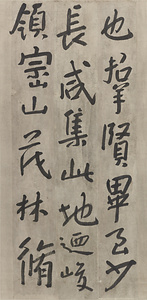 也羣賢畢至少
長咸集此地迺峻
領崇山茂林脩